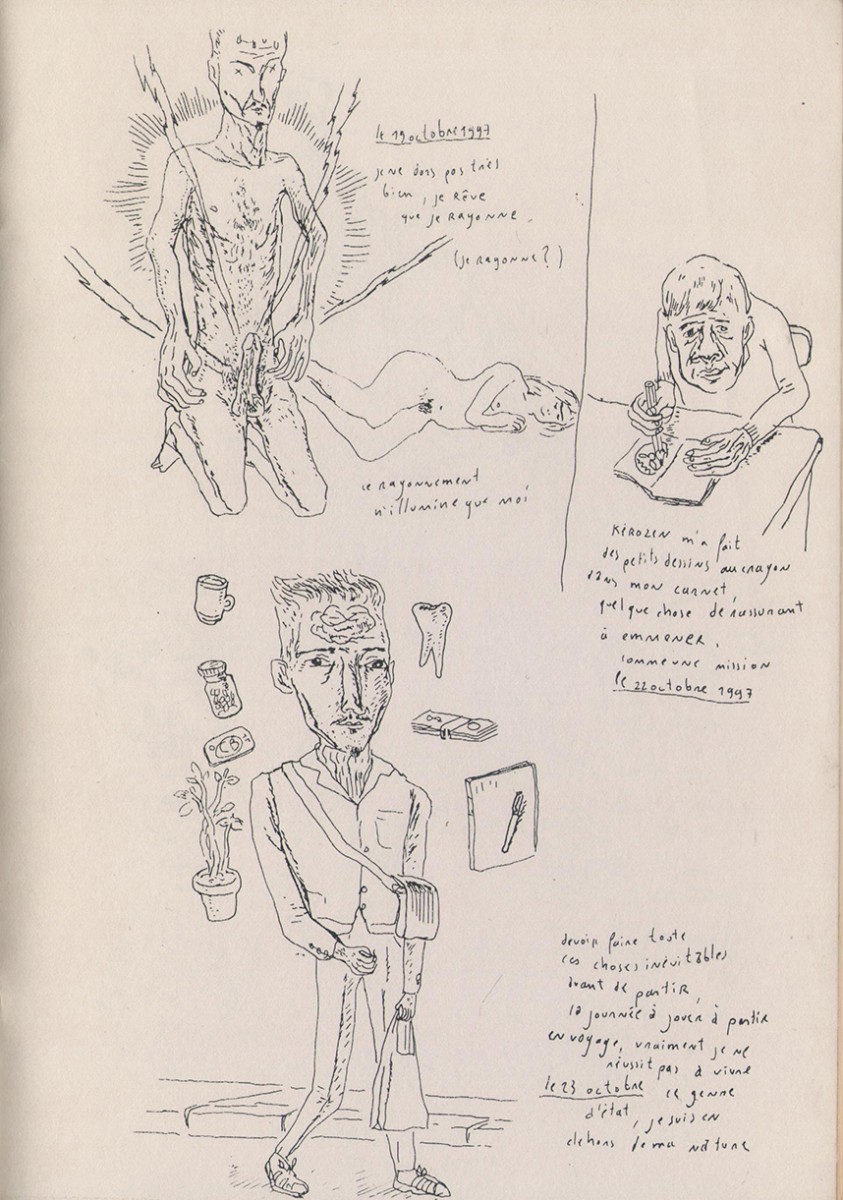 le 19 octobre 1997
je ne dors pas très
bien, je rêve
que je rayonne.
(je rayonne?)
ce rayonnement
n'illumine que moi
KEROZEN m'a fait
des petits dessins au crayon
dans mon carnet,
quelque chose de rassurant
à emmener.
comme une mission
le 22 octobre 1997
devoir faire toute
ces choses inévitables
avant de partir,
la journée à jouer à partir
en voyage, vraiment je ne
réussit pas à vivre
le 23 octobre ce genre
d'état, je suis en
dehors de ma nature